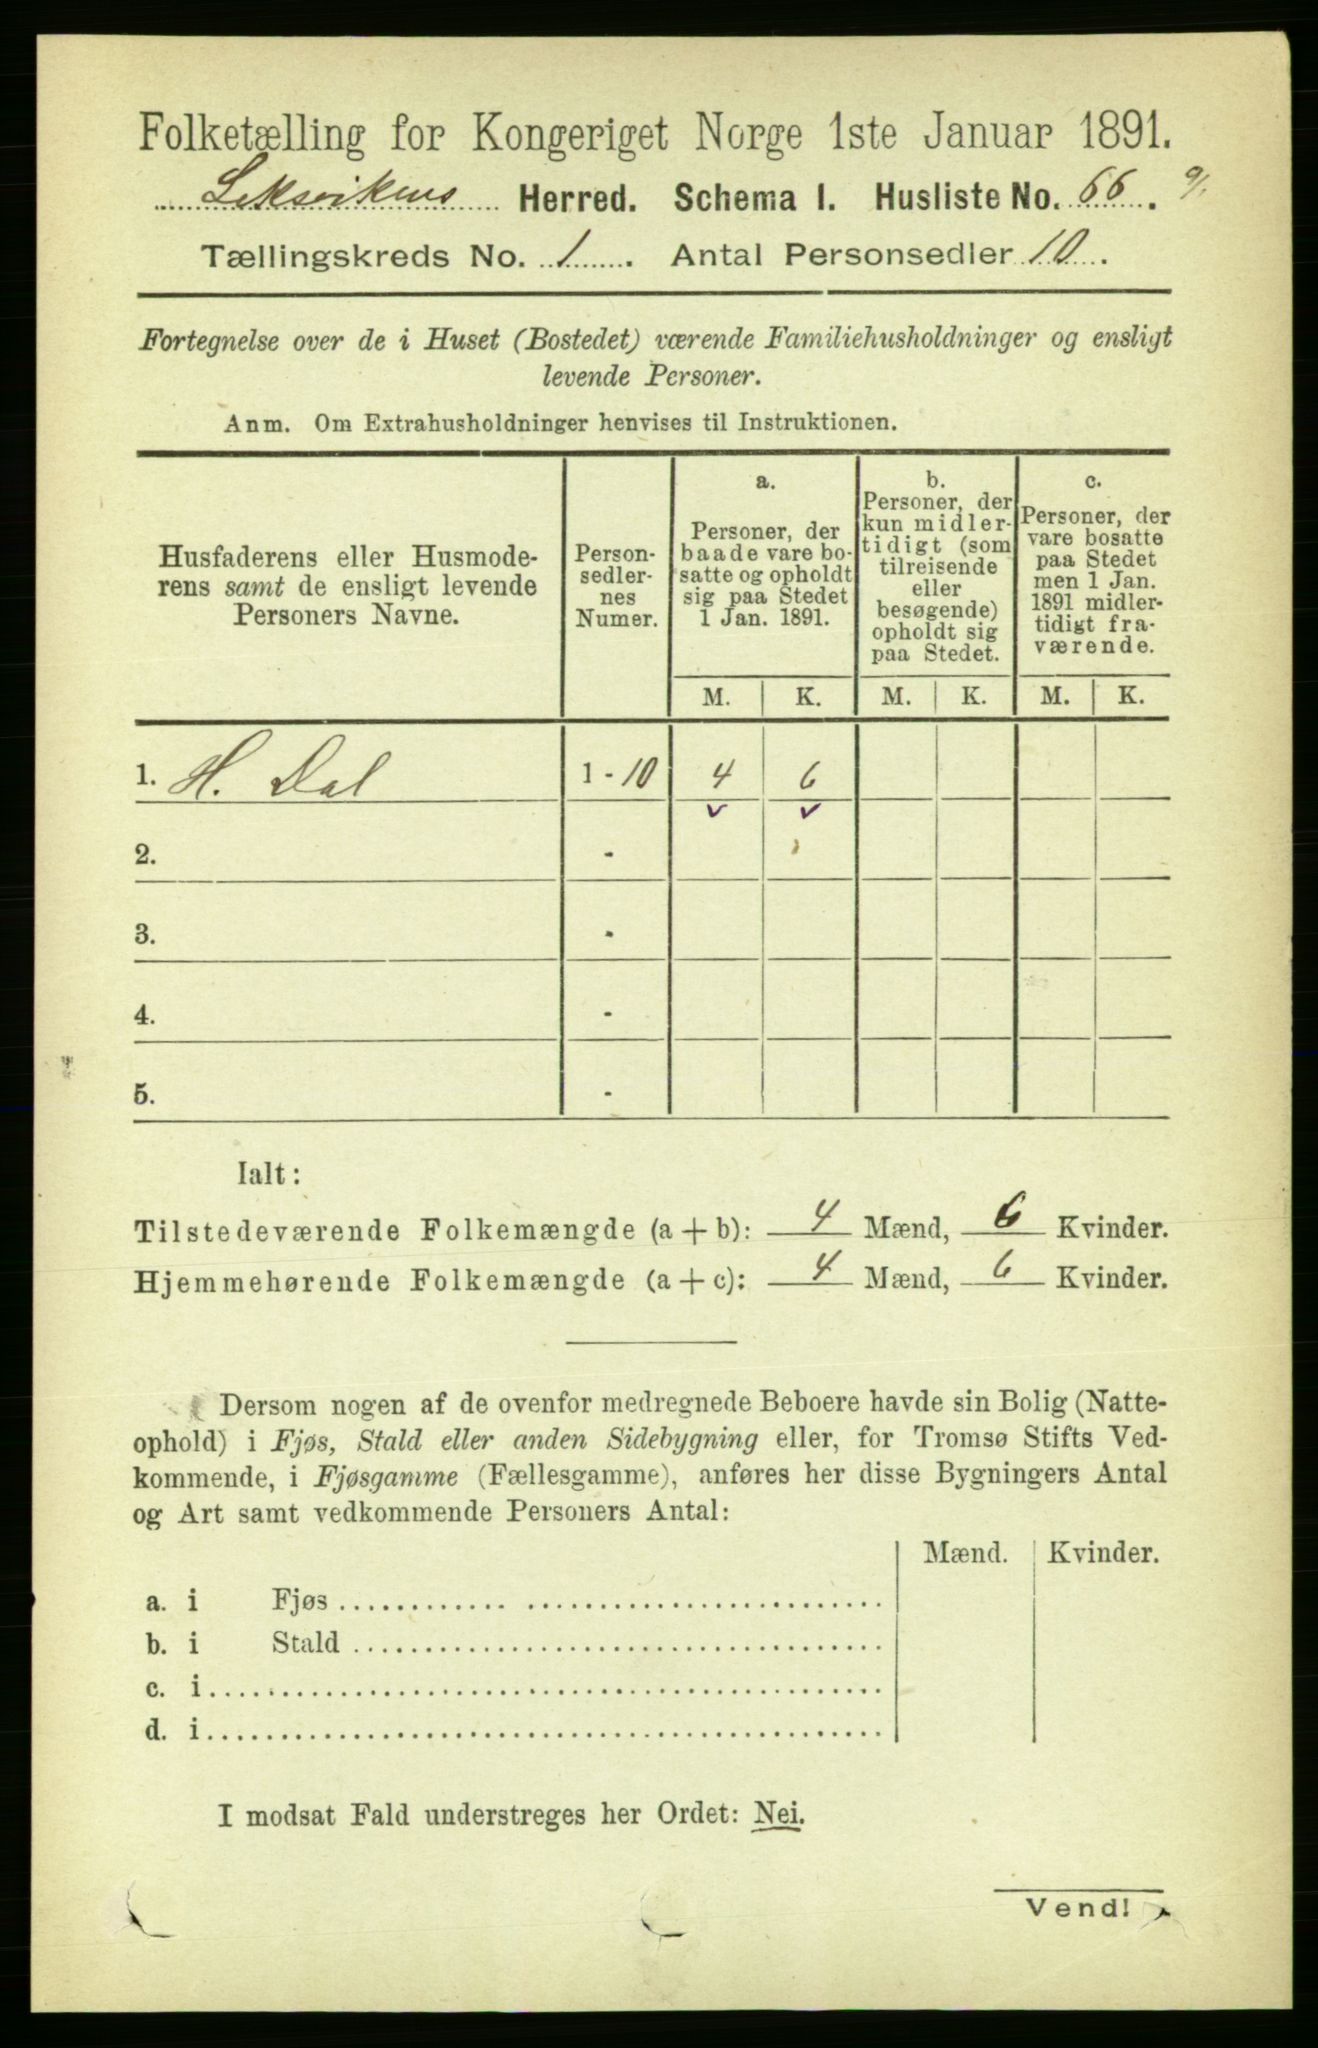 Folketælling for Kongeriget Norge 1ste Januar 1891.
Leksvikens Herred. Schema 1. Husliste No. 66.
Tællingskreds No. 1. Antal Personsedler 10.
Fortegnelse over de i Huset (Bostedet) værende Familiehusholdninger og ensligt
levende Personer.
Anm. Om Extrahusholdninger henvises til Instruktionen.
Husfaderens eller Husmode-
rens samt de ensligt levende
Personers Navne.
Person-
sedler-
nes
Numer.
a.
Personer, der
baade vare bo-
satte og opholdt
sig paa Stedet
1 Jan. 1891.
b.
Personer, der
kun midler-
tidigt (som
tilreisende
eller
besøgende)
opholdt sig
paa Stedet.
c.
Personer, der
vare bosatte
paa Stedet
men 1 Jan.
1891 midler-
tidigt fra-
værende.
M. K. M. K. M. K.
1. H. Dal 1 - 10 4 6
2. -
3. -
4. -
5. -
Ialt:
Tilstedeværende Folkemængde (a + b): 4 Mænd, 6 Kvinder.
Hjemmehørende Folkemængde (a + c): 4 Mænd, 6 Kvinder.
Dersom nogen af de ovenfor medregnede Beboere havde sin Bolig (Natte-
ophold) i Fjøs, Stald eller anden Sidebygning eller, for Tromsø Stifts Ved-
kommende, i Fjøsgamme (Fællesgamme), anføres her disse Bygningers Antal
og Art samt vedkommende Personers Antal:
Mænd. Kvinder.
a. i Fjøs
b. i Stald
c. i
d. i
I modsat Fald understreges her Ordet: Nei.
Vend!